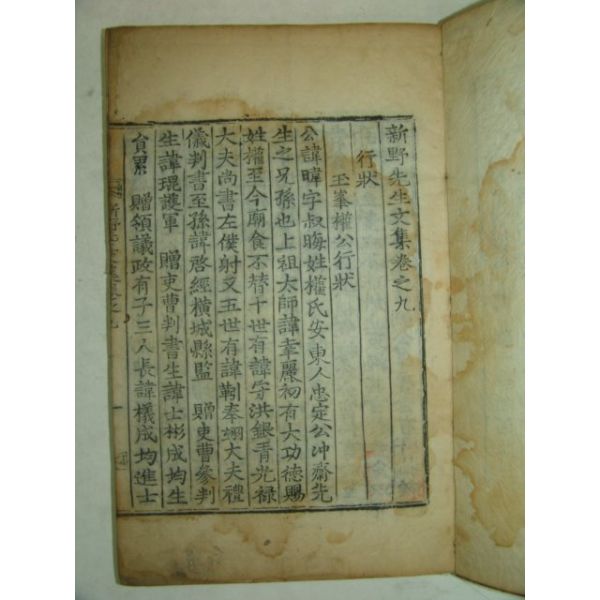 新野先生文集卷之九
行狀
玉峯權公行狀
公諱暐字叔晦姓權氏安東人忠定公冲齋先
生之兄孫也上祖太師諱幸麗初有大功德賜
姓權至今廟食不替十世有諱守洪銀青光祿
大夫尚書左僕射又五世有諱靷奉翊大夫禮
儀判書至孫諱啓經橫城縣監 贈吏曹叅判
生諱琨護軍 贈吏曹判書生諱士彬成均生
員累 贈領議政有子三人長諱檥成均進士